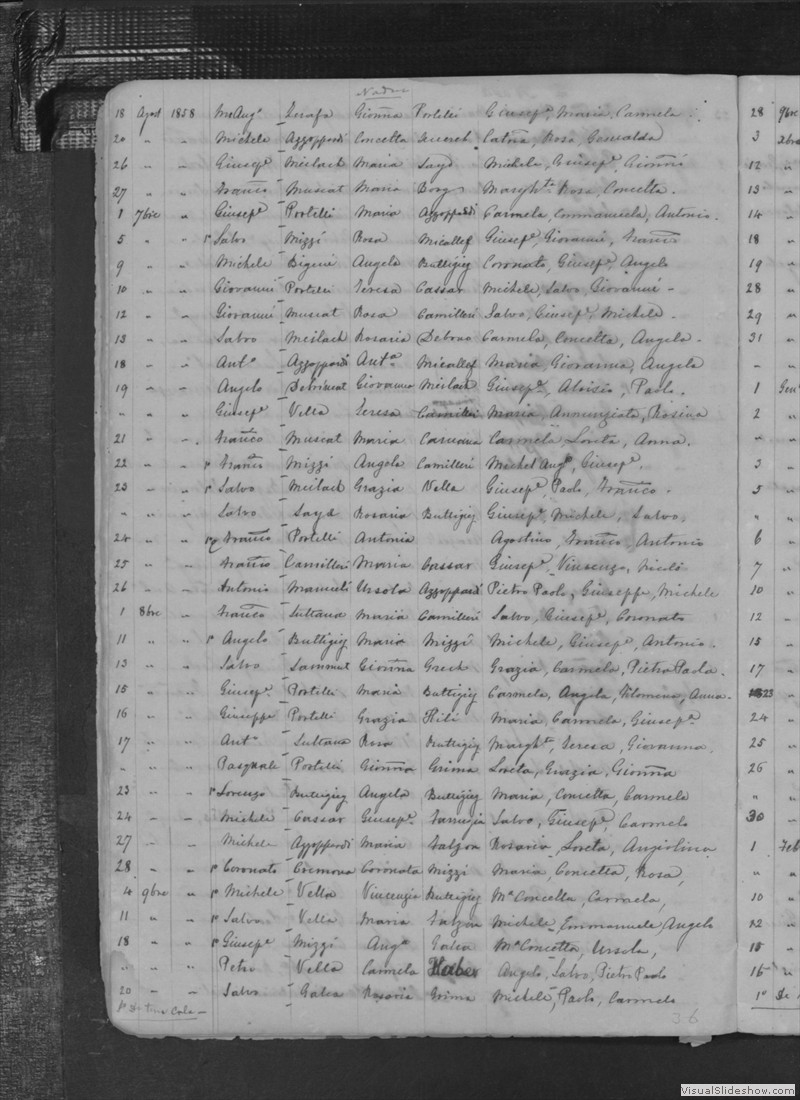 Nadur
18 Agost 1858 Mc Angº Serafa Gionña Portelli Giusepe, Maria, Carmela 28 9bre
20 " " Michele Azzopardi Concetta Catña, Rosa, 3 Xbre
26 " " Giusepe Meilach Maria Sayd Michele, Giusepe, Gionñi 12 "
27 " " Franco Muscat Maria Borg Marghta Rosa, Concetta. 13 "
1 7bre " Giusepe Portelli Maria Azzopardi Carmela, Antonio. 14 "
5 " " Salvo Mizzi Rosa Micallef Giusepe, Giovanni, Franco 18 "
9 " " Michele Bigeni Angela Buttigieg Coronato, Giusepe, Angelo 19 "
10 " " Giovanni Portelli Teresa Cassar Michele, Salvo, Giovanni 28 "
12 " " Giovanni Muscat Rosa Camilleri Salvo, Giusepe, Michele. 29 "
13 " " Salvo Meilach Rosaria Debrao Carmela, Concetta, Angela. 31 "
18 " " Antº Azzopardi Antª Micallef Maria, Giovanna, Angela "
19 " " Angelo Giovanna Meilach Giusepe, Aloisio, Paolo. 1 Gen
" " " Giusepe Vella Teresa Camilleri Maria, Annunziata, Rosina 2 "
21 " " Franco Muscat Maria Caruana Carmela, Loreta, Anna. "
22 " " Franco Mizzi Angela Camilleri Michel Angº, Giusepe. 3 "
23 " " Salvo Meilach Grazia Vella Giusepe, Paolo, Franco. 5 "
" " " Salvo Sayd Rosaria Buttigieg Giusepe, Michele, Salvo, "
24 " " Franco Portelli Antonia Agostino, Franco, Antonio 6 "
25 " " Franco Camilleri Maria Cassar Giusepe, Vincenzo, Nicolò 7 "
26 " " Antonio Mamieli Ursola Azzopardi Pietro Paolo, Giuseppe, Michele 10 "
1 8bre " Franco Sultana Maria Camilleri Salvo, Giusepe, Coronato 12 "
11 " " Angelo Buttigieg Maria Mizzi Michele, Giusepe, Antonio. 15 "
13 " " Salvo Sammut Gionña Grech Grazia, Carmela, Pietra Paola. 17 "
15 " " Giusepe Portelli Maria Buttigieg Carmela, Angela, Filomena, Anna. 23 "
16 " " Giuseppe Portelli Grazia Hili Maria Carmela, Giusepa. 24 "
17 " " Antº Sultana Rosa Buttigieg Marghta, Teresa, Giovanna, 25 "
" " " Pasquale Portelli Gionña Grima Loreta, Grazia, Gionña 26 "
23 " " Lorenzo Buttigieg Angela Buttigieg Maria, Concetta, Carmela "
24 " " Michele Cassar Giusepa Farrugia Salvo, Giusepe, Carmelo 30 "
27 " " Michele Azzopardi Maria Falzon Rosaria, Loreta, Angiolina 1 Feb
28 " " Coronato Cremona Coronata Mizzi Maria Concetta, Rosa, "
4 9bre " Michele Vella Vincenza Buttigieg Mª Concetta, Carmela, 10 "
11 " " Salvo Vella Maria Falzon Michele, Emmanuele Angelo 12 "
18 " " Giusepe Mizzi Angª Galea Mª Concetta, Ursola, 15 "
" " " Petro Vella Carmela Haber Angelo, Salvo, Pietro Paolo 16 "
20 " " Salvo Galea Rosaria Grima Michele, Paolo, Carmelo 1º
36
VisualSlideshow.com